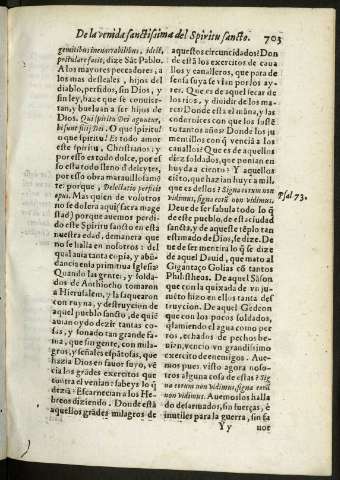 De la venida sanctissima del Spiritu sancto. 703
gemitibus inenarrabilibus, idest,
postulare facit, dize Sãt Pablo.
A los mayores peccadores, a
los mas desleales, hijos del
diablo, perdidos, sin Dios, y
sin ley, haze que se conuier-
tan, y bueluan a ser hijos de
Dios. Qui spiritu Dei aguntur,
hi sunt filij Dei. O que spiritu!
o que spiritu! Es todo amor
este spiritu, Christianos: y
por esso es todo dolce, por es
so esta todo lleno d deleytes,
por esso obra marauillosamẽ
te: porque, Delectatio perficit
opus. Mas quien de vosotros
no se dolera aqui (sacra mage
stad) porque auemos perdi-
do este Spiritu sancto en esta
nuestra edad, demanera que
no se halla en nosotros: del
qual auia tanta copia, y abũ-
dancia en la primitiua Iglesia?
Quando las gente, y solda-
dos de Anthiocho tomaron
a Hierusalem, y la saquearon
con ruyna, y destruycion de
aquel pueblo sancto, de quiẽ
auian oydo dezir tantas co-
sas, y sonado tan grande fa-
ma, que sin gente, con mila-
gros, y señales espãtosas, que
hazia Dios en fauor suyo, vẽ
cia los grãdes exercitos que
contra el venian: sabeys lo q̃
dezian? Escarnecian a los He-
breos diziendo. Donde està
aquellos grãdes milagros de
aquestos circuncidados? Don
de està a los exercitos de caua
llos y caualleros, que para de
fensa suya se vian por los ay-
res? Que es de aquel secar de
los rios, y diuidir de los ma-
res? Donde esta el mãna, y las
codornices con que los susẽ
to tantos años? Donde los ju
memillos con q̃ vencia a los
caualleos? Que es de aquellos
diez soldados, que ponian en
huyda a ciento? Y aquellos
ciẽto, que hazian huyr a mil,
que es dellos? Signa eorum non
vidimus, signa eorũ non vidimus. Psal 73.
Deue de ser fabula todo lo q̃
de este pueblo, de esta ciudad
sancta, y de aqueste tẽplo tan
estimado de Dios, se dize. De
ue de ser mentira lo q̃ se dize
de aquel Dauid, que mato al
Giganta̧o Golias cõ tantos
Philistheos. De aquel Sãson
que con la quixada de vn ju-
mẽto hizo en ellos tanta des
truycion. De aquel Gedeon
que con los pocos soldados,
q̃ lamiendo el agua como per
ros, echados de pechos be-
uiron, vencio vn grandissimo
exercito de enemigos. Aue-
mos pues visto agora noso-
tros alguna cosa de estas? Sig
na eorum non vidimus, signa eorũ
non vidimus. Auemoslos halla
do desarmados, sin fuerças, è
inutiles para la guerra, sin fa
Yy uor